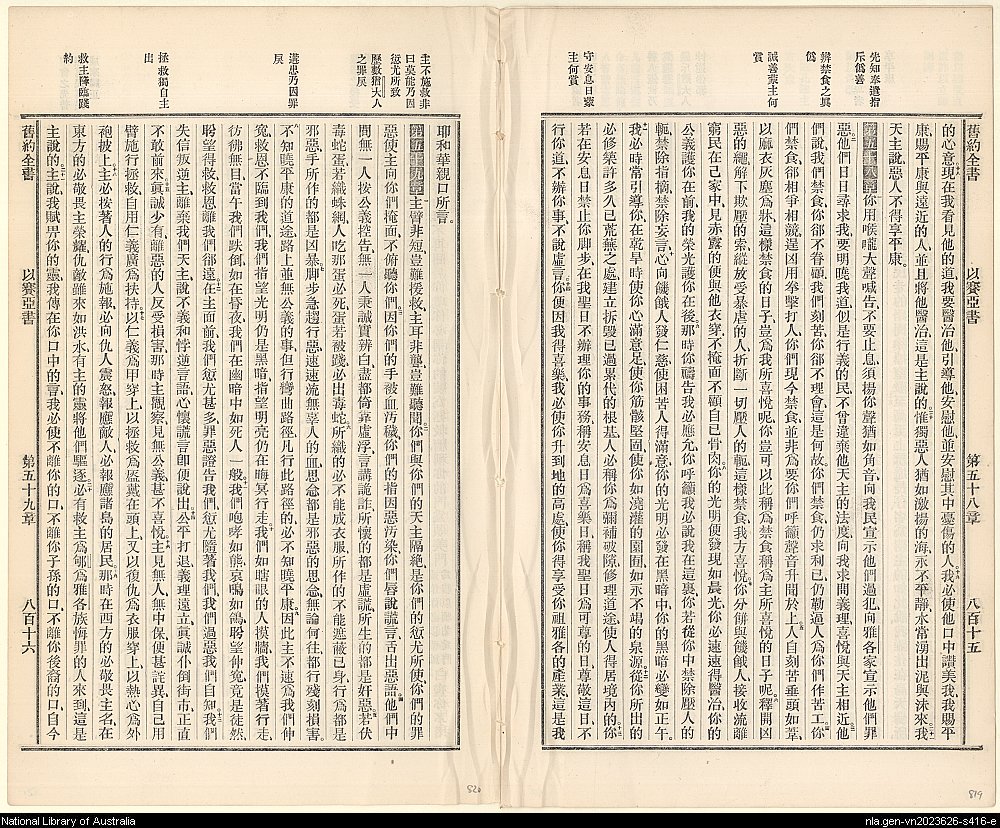 先知奉遣指
斥僞善
辨禁食之眞
僞
誠善蒙主何
賞
守安息日蒙
主何賞
舊約全書 以賽亞書 第五十八章 八百十五
的心意、現在我看見他的道、我要醫治他、引導他、安慰他、並安慰其中憂傷的人、我必使他口中讚美我、我賜平
康、賜平康與遠近的人、並且將他醫治、這是主說的、惟獨惡人猶如激揚的海、永不平靜、水常湧出泥與沫來、我
天主說、惡人不得享平康。
第五十八章 你用喉嚨大聲喊告、不要止息、須揚你聲猶如角音、向我民宣示他們過犯、向雅各家宣示他們罪
惡、他們日日尋求我、要明曉我道、似是行義的民、不曾違棄他天主的法度、向我求問義理、喜悅與天主相近、他
們說、我們禁食、你卻不眷顧、我們刻苦、你卻不理會、這是何故、你們禁食、仍求利己、仍勒逼人爲你們作苦工、你
們禁食、卻相爭相競、逞凶用拳擊打人、你們現今禁食、並非爲要你們呼籲聲音升聞於上、人自刻苦、垂頭如葦、
以麻衣灰塵爲牀、這樣禁食的日子、豈爲我所喜悅呢、你豈可以此稱爲禁食、稱爲主所喜悅的日子呢、釋開凶
惡的繩、解下欺壓的索、縱放受暴虐的人、折斷一切壓人的軛、這樣禁食、我方喜悅、你分餅與饑餓人、接收流離
窮民在己家中、見赤露的便與他衣穿、不掩面不顧自己骨肉、你的光明便發現如晨光、你必速速得醫治、你的
公義護你在前、我的榮光護你在後、那時你禱告我必應允、你呼籲、我必說我在這裏、你若從你中禁除壓人的
軛、禁除指摘、禁除妄言、心向饑餓人發仁慈、使困苦人得滿意、你的光明必發在黑暗中、你的黑暗必變如正午、
我必時常引導你、在乾旱時使你心滿意足、使你筋骸堅固、使你如澆灌的園囿、如永不竭的泉源、從你所出的
必修築許多久已荒蕪之處、建立拆毀已過累代的根基、人必稱你爲彌補破隙、修理道途、使人得居境內的、你
若在安息日禁止你脚步、在我聖日不辦理你的事務、稱安息日爲喜樂日、稱我聖日爲可尊的日、尊敬這日、不
行你道、不辦你事、不說虛言、你便因我得喜樂、我必使你升到地的高處、使你得享受你祖雅各的產業、這是我
819
主不施救非
曰莫能乃因
愆尤所致
歷數猶大人
之罪戾
遘患乃因罪
戾
拯救獨自主
出
救主降臨踐
約
耶和華親口所言。
第五十九章 主臂非短、豈難援救、主耳非聾、豈難聽聞、你們與你們的天主隔絕、是你們的愆尤所使、你們的罪
惡、使主向你們掩面、不俯聽你們、因你們的手被血污穢、你們的指因惡污染、你們唇說謊言、舌出惡語、他們中
間無一人按公義控告、無一人秉誠實辨白、盡都倚靠虛浮、言講詭詐、所懷的都是虛謊、所生的都是奸惡、若伏
毒蛇蛋、若織蛛網、人吃那蛋必死、蛋若被踐、必出毒蛇、所織的必不能成衣服、所作的不能遮蔽己身、行爲都是
邪惡、手所作的都是凶暴、脚步急趨行惡、速速流無辜人的血、思念都是邪惡的思念、無論何往、都行殘刻損害、
不知曉平康的道途、路上並無公義的事、但行彎曲路徑、凡行此路徑的、必不知曉平康、因此主不速爲我們伸
寃、救恩不臨到我們、我們指望光明、仍是黑暗、指望明亮、仍在晦冥行走、我們如瞎眼的人摸牆、我們摸著行走、
彷彿無目、當午我們跌倒、如在昏夜、我們在幽暗中如死人一般、我們咆哮如熊、哀鳴如鴿、盼望伸寃、竟是徒然、
盼望得救、救恩離我們卻遠、在主面前、我們愆尤甚多、罪惡證告我們、愆尤隨著我們、我們過惡我們自知、我們
失信叛逆主、離棄我們天主、說不義和悖逆言語、心懷謊言、卽便說出、公平打退、義理遠立、眞誠仆倒街市、正直
不敢前來、眞誠少有、離惡的人反受損害、那時主觀察、見無公義、甚不喜悅、主見無人、無中保、便甚詫異、自己用
臂施行拯救、自用仁義廣爲扶持、以仁義爲甲穿上、以拯救爲盔戴在頭上、又以復仇爲衣服穿上、以熱心爲外
袍披上、主必按著人的行爲施報、必向仇人震怒、報應敵人、必報應諸島的居民、那時在西方的必敬畏主名、在
東方的必敬畏主榮耀、仇敵雖來如洪水、有主的靈將他們驅逐、必有救主爲郇爲雅各族悔罪的人來到、這是
主說的、主說、我賦畀你的靈、我傳在你口中的言、我必使不離你的口、不離你子孫的口、不離你後裔的口、自今
舊約全書 以賽亞書 第五十九章 八百十六
820
National Library of Australia
nla.gen-vn2023626-s416-e